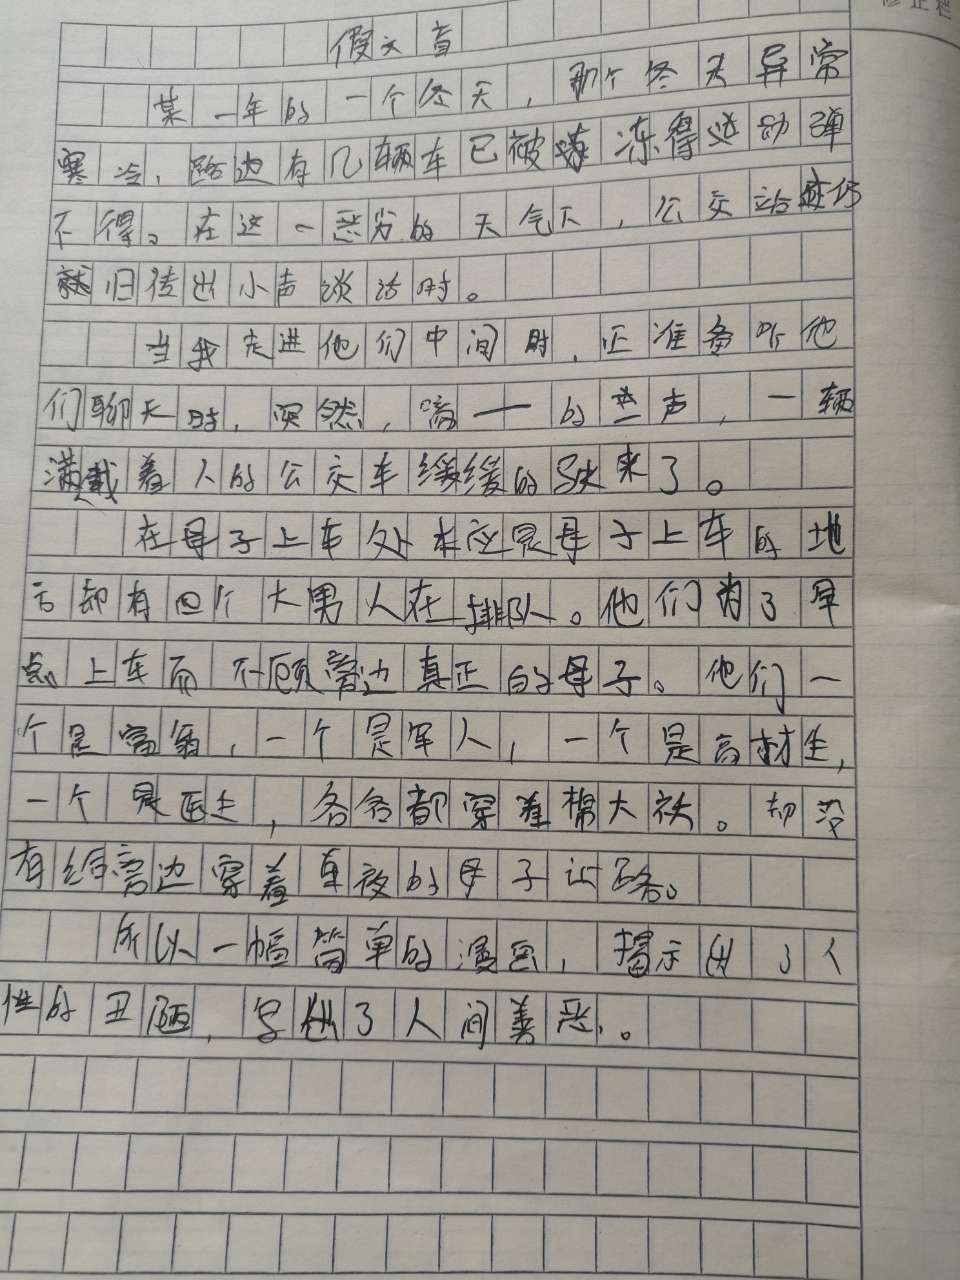 修正栏
假文盲
某一年的一个冬天，那个冬天异常
寒冷，路边有几辆车已被冻得动弹
不得。在这一恶劣的天气下，公交站仍
就归传出小声谈话时。
当我走进他们中间时，正准备听他
们聊天时，突然，嘀一的一声，一辆
满载着人的公交车缓缓的驶来了。
在母子上车处本应是母子上车的地
方却有四个大男人在排队。他们为了早
点上车而不顾旁边真正的母子。他们一
个是富翁，一个是军人，一个是高材生，
一个是医生，各各都穿着棉大袄。却没
有给旁边穿着单衣的母子让路。
所以一幅简单的漫画，揭示出了人
性的丑陋，写出了人间善恶。